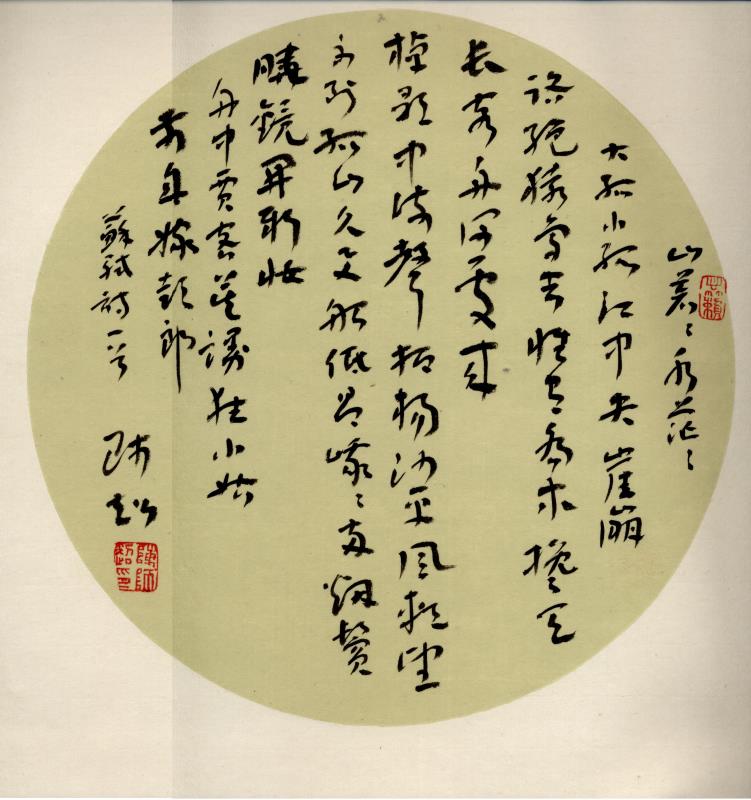 山蒼〻水茫〻
大孤小孤江中央崖崩
路絕猿鳥去惟有喬木攙天
長客舟何處來
棹歌中流聲抑揚沙平風軟望
不到孤山久與船低昂峨〻兩烟鬟
曉鏡開新妝
舟中賈客莫謾狂小姑
前年嫁彭郎
蘇軾詩一首